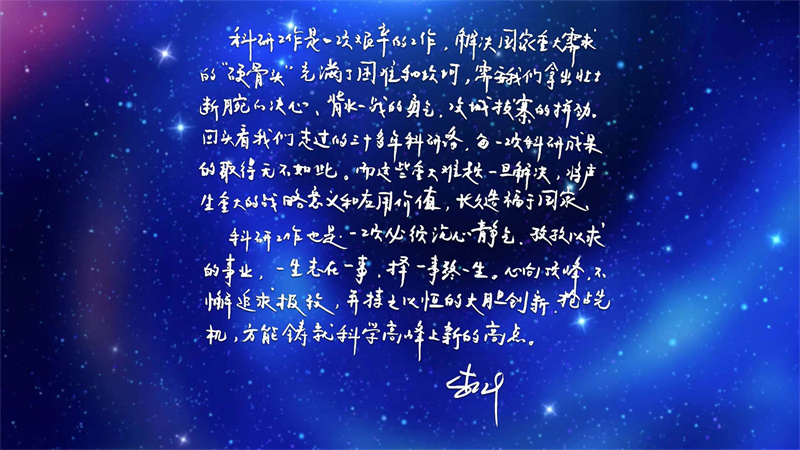 科研工作是一次艰辛的工作，解决国家重大需求
的“硬骨头”充满了困难和坎坷，需要我们拿出壮士
断腕的决心、背水一战的勇气、攻城拔寨的拼劲。
回头看我们走过的三十多年科研路，每一次科研成果
的取得无不如此。而这些重大难题一旦解决，将产
生重大的战略意义和应用价值，长久造福于国家。
科研工作也是一次必须沉心静气、孜孜以求
的事业，一生志在一事，择一事终一生。心向顶峰，不
懈追求极致，并持之以恒的大胆创新、抢占先
机，方能铸就科学高峰上新的高点。